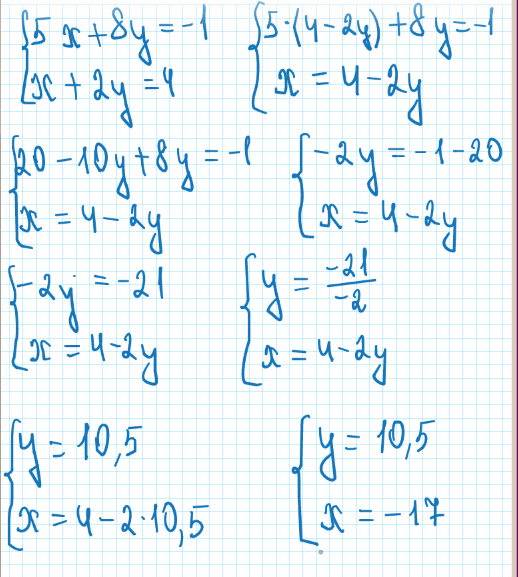 5x+8y=-1
x+2y=4
5·(4-2y)+8y=-1
x=4-2y
20-10y+8y=-1
x=4-2y
-2y=-1-20
x=4-2y
-2y=-21
x=4-2y
y=-21/-2
x=4-2y
y=10,5
x=4-2·10,5
y=10,5
x=-17